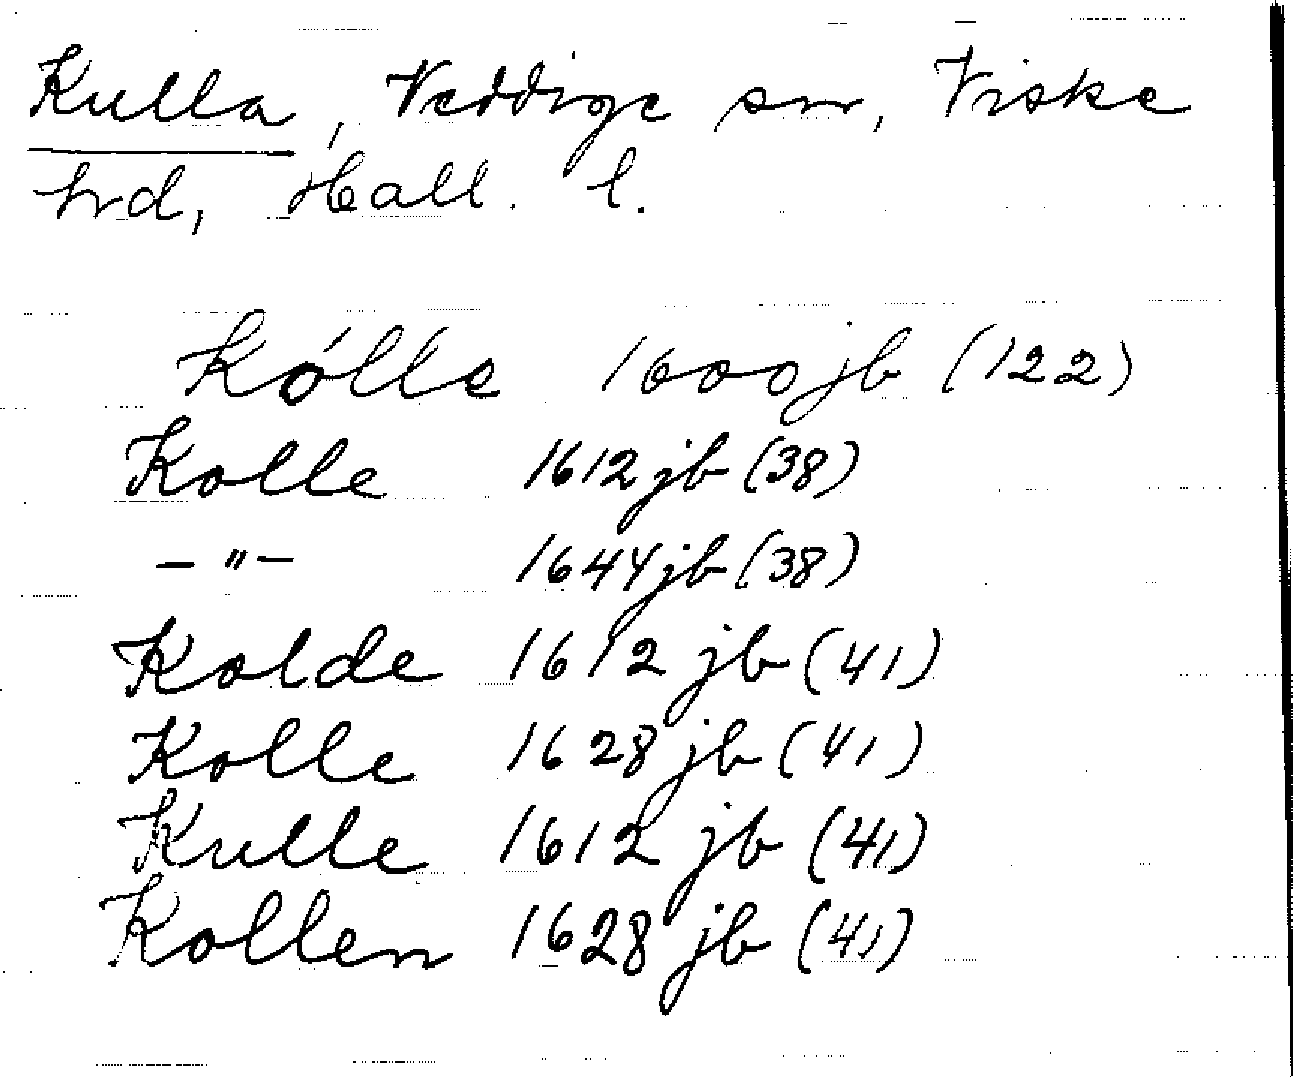 Kulla, Veddige sn, Viske
hrd, Hall. l.
Kólle 1600 jb (122)
Kolle 1612 jb (38)
— " — 1644 jb (38)
Kolde 1612 jb (41)
Kolle 1628 jb (41)
Kulle 1612 jb (41)
Kollen 1628 jb (41)